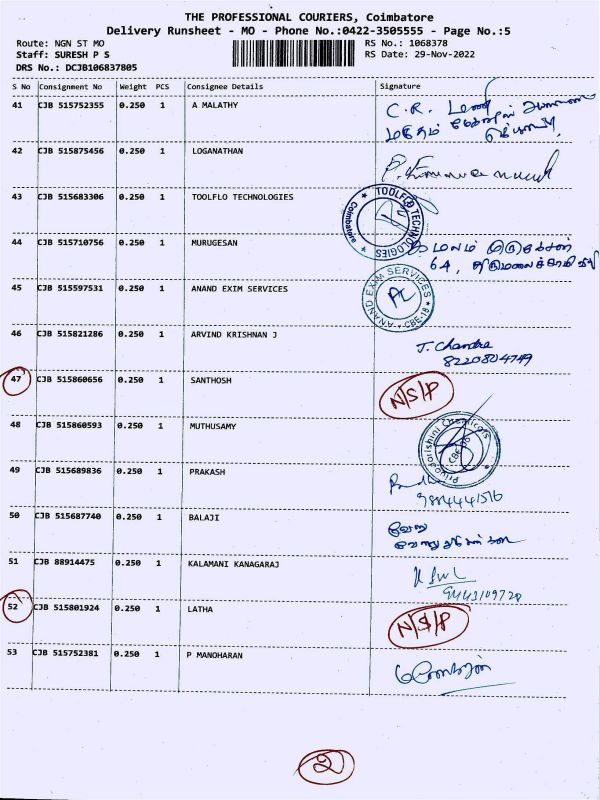 THE PROFESSIONAL COURIERS, Coimbatore
Delivery Runsheet - MO - Phone No.:0422-3505555 - Page No.:5
Route: NGN ST MO
RS No.: 1068378
Staff: SURESH P S
RS Date: 29-Nov-2022
DRS No.: DCJB106837805
S No Consignment No Weight PCS Consignee Details Signature
41 CJB 515752355 0.250 1 A MALATHY
C.R. மணி
42 CJB 515875456 0.250 1 LOGANATHAN
43 CJB 515683306 0.250 1 TOOLFLO TECHNOLOGIES
TOOLFLO TECHNOLOGIES Coimbatore
44 CJB 515710756 0.250 1 MURUGESAN
கமலம் முருகேசன்
64, திருமலைச்சாமி வீதி
45 CJB 515597531 0.250 1 ANAND EXIM SERVICES
ANAND EXIM SERVICES CBE-18
46 CJB 515821286 0.250 1 ARVIND KRISHNAN J
J. Chandra
8220804749
47 CJB 515860656 0.250 1 SANTHOSH N/S/P
48 CJB 515860593 0.250 1 MUTHUSAMY
Priyadarishini Chemicals
49 CJB 515689836 0.250 1 PRAKASH
9884441516
50 CJB 515687740 0.250 1 BALAJI
வேலு
51 CJB 88914475 0.250 1 KALAMANI KANAGARAJ
9443109720
52 CJB 515801924 0.250 1 LATHA N/S/P
53 CJB 515752381 0.250 1 P MANOHARAN
மனோகரன்
2